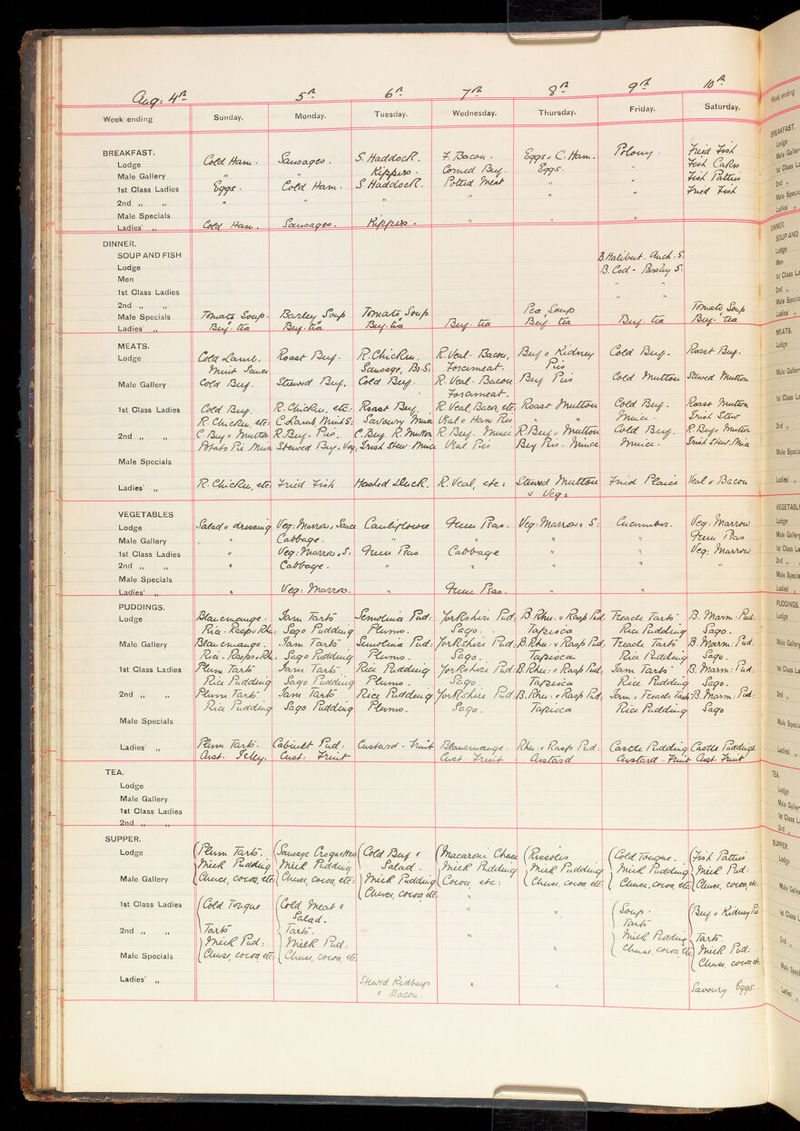 Aug: 4th 5th 6th 7th 8th 9th 10th
Week ending Sunday. Monday. Tuesday. Wednesday. Thursday. Friday. Saturday.
BREAKFAST.
Lodge Cold Ham. Sausages. S. Haddock. F. Bacon. Eggs & C. Ham. Polony. Fried Fish
Male Gallery " " Kippers. Corned Beef. Eggs. " Fish Cakes
1st Class Ladies Eggs. Cold Ham. S. Haddock. Potted Meat " " Fish Patties
2nd " " " " " " " " Fried Fish
Male Specials
Ladies' " Cold Ham. Sausages. Kippers. " " "
DINNER.
SOUP AND FISH B. Halibut.
Lodge B. Cod - Parsley S.
Men " "
1st Class Ladies
2nd " " " "
Male Specials Tomato Soup. Barley Soup Tomato Soup Pea Soup Tomato Soup
Ladies' " Beef tea Beef tea Beef tea Beef tea Beef tea Beef tea Beef tea
MEATS.
Lodge Cold Lamb. Roast Beef. R. Chicken. R. Veal. Bacon, Beef & Kidney Cold Beef. Roast Beef.
Mint Sauce Sausage, Br: S: Forcemeat. Pies
Male Gallery Cold Beef. Stewed Beef. Cold Beef. R. Veal. Bacon Beef Pies Cold Mutton Stewed Mutton
Forcemeat.
1st Class Ladies Cold Beef. R. Chicken, etc: Roast Beef. R. Veal, Bacon, etc Roast Mutton Cold Beef. Roast Mutton
R. Chicken, etc: C. Lamb, Mint S: Savoury Mince Veal & Ham Pies " Mince. Irish Stew
2nd " " C. Beef & Mutton R. Beef. Pies. C. Beef. R. Mutton R. Beef. Mince R. Beef & Mutton Cold Beef. R. Beef & Mutton
Potato Pie Mince Stewed Beef, Veg. Irish Stew. Mince Veal Pies Beef Pies - Mince Mince. Irish Stew. Mince
Male Specials
Ladies' " R. Chicken, etc: Fried Fish Hashed Duck. R. Veal, etc: Stewed Mutton Fried Plaice Veal & Bacon
& Veg:
VEGETABLES
Lodge Salad & dressing Veg: Marrow & Sauce Cauliflower Green Peas. Veg: Marrow & S: Cucumber. Veg: Marrow
Male Gallery " Cabbage. " " " " Green Peas
1st Class Ladies " Veg: Marrow & S: Green Peas Cabbage " " Veg: Marrow
2nd " " " Cabbage. " " " " "
Male Specials
Ladies' " " Veg: Marrow. " Green Peas. " "
PUDDINGS.
Lodge Blancmange. Jam Tarts Semolina Pud: Yorkshire Pud: B. Rhu: & Rasp Pud. Treacle Tarts B. Marm: Pud.
Rice. Sago Pudding Plums. Sago. Tapioca Rice Pudding Sago.
Male Gallery Blancmange. Jam Tarts Semolina Pud: Yorkshire Pud: B. Rhu: & Rasp Pud. Treacle Tarts B. Marm: Pud.
Rice. Sago Pudding Plums. Sago. Tapioca Rice Pudding Sago.
1st Class Ladies Plum Tarts. Jam Tarts Rice Pudding Yorkshire Pud: B. Rhu: & Rasp Pud. Jam Tarts. B. Marm: Pud.
Rice Pudding Sago Pudding Plums. Sago Tapioca Rice Pudding Sago.
2nd " " Plum Tarts Jam Tarts Rice Pudding Yorkshire Pud: B. Rhu: & Rasp Pud. Jam & Treacle Tarts B. Marm: Pud:
Rice Pudding Sago Pudding Plums. Sago. Tapioca Rice Pudding Sago
Male Specials
Ladies' " Plum Tarts. Cabinet Pud: Custard - Fruit Blancmange. Rhu: & Rasp Pud: Castle Pudding Castle Puddings
Cust. Jelly. Cust: Fruit Cust: Fruit Custard Custard - Fruit Cust. Fruit
TEA.
Lodge
Male Gallery
1st Class Ladies
2nd " "
SUPPER.
Lodge Plum Tarts. Sausage Croquettes Cold Beef & Macaroni Cheese Rissoles Cold Tongue. Fish Patties
Milk Pudding Milk Pudding Salad. Milk Pudding Milk Pudding Milk Pudding Milk Pud:
Male Gallery Cheese, cocoa, etc Cheese, cocoa, etc: Milk Pudding Cocoa, etc: Cheese, cocoa etc: Cheese, cocoa etc Cheese, cocoa, etc.
Cheese, cocoa etc
1st Class Ladies Cold Tongue Cold Meat & " " Soup. Beef & Kidney Pie
Salad. Tarts
2nd " " Tarts Tarts. " Milk Pudding Tarts.
Milk Pud: Milk Pud: " Cheese, cocoa, etc Milk Pud.
Male Specials Cheese, cocoa, etc Cheese, cocoa, etc Cheese, cocoa etc
Ladies' " Stewed Kidneys " " Savoury Eggs.
& Bacon.
Week ending
BREAKFAST.
Lodge
Male Gallery
1st Class L
2nd "
Male Speci
Ladies' "
DINNER.
SOUP AND
Lodge
Men
1st Class La
2nd "
Male Specia
Ladies' "
MEATS.
Lodge
Male Gallery
1st Class La
2nd "
Male Specia
Ladies' "
VEGETABL
Lodge
Male Gallery
1st Class La
2nd "
Male Specia
Ladies' "
PUDDINGS.
Lodge
Male Gallery
1st Class La
2nd "
Male Specia
Ladies' "
TEA.
Lodge
Male Galler
1st Class L
2nd "
SUPPER.
Lodge
Male Galle
1st Class L
2nd "
Male Speci
Ladies' "